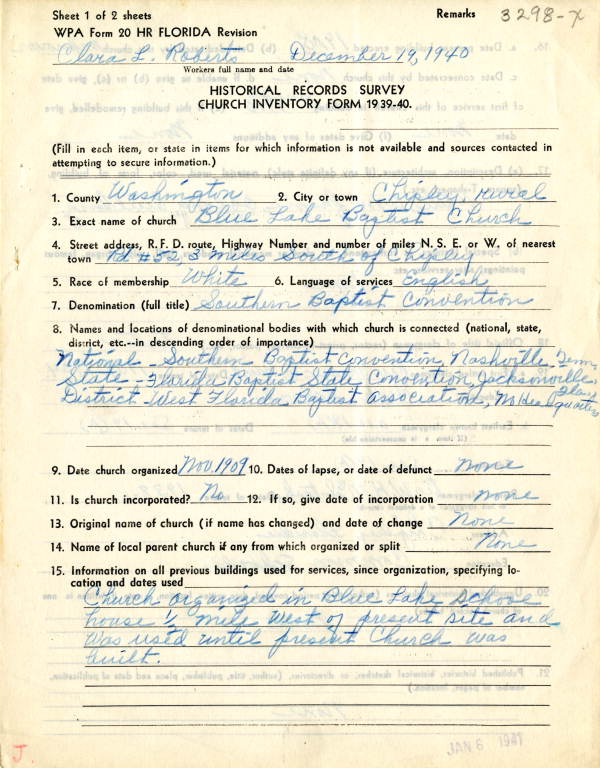 Sheet 1 of 2 sheets Remarks 3298-X
WPA Form 20 HR FLORIDA Revision
Clara L. Roberts December 19, 1940
Workers full name and date
HISTORICAL RECORDS SURVEY
CHURCH INVENTORY FORM 1939-40.
(Fill in each item, or state in items for which information is not available and sources contacted in
attempting to secure information.)
1. County Washington 2. City or town Chipley, rural
3. Exact name of church Blue Lake Baptist Church
4. Street address, R. F. D. route, Highway Number and number of miles N. S. E. or W. of nearest
town Rd #52, 3 miles South of Chipley
5. Race of membership White 6. Language of services English
7. Denomination (full title) Southern Baptist Convention
8. Names and locations of denominational bodies with which church is connected (national, state,
district, etc.--in descending order of importance)
National - Southern Baptist Convention, Nashville, Tenn.
State - Florida Baptist State Convention, Jacksonville, Fla.
District - West Florida Baptist Association, No Headquarters
9. Date church organized Nov. 1909 10. Dates of lapse, or date of defunct none
11. Is church incorporated? No 12. If so, give date of incorporation none
13. Original name of church (if name has changed) and date of change None
14. Name of local parent church if any from which organized or split None
15. Information on all previous buildings used for services, since organization, specifying lo-
cation and dates used
Church organized in Blue Lake School
house ½ mile West of present site and
was used until present Church was
built.
J.
JAN 6 1941